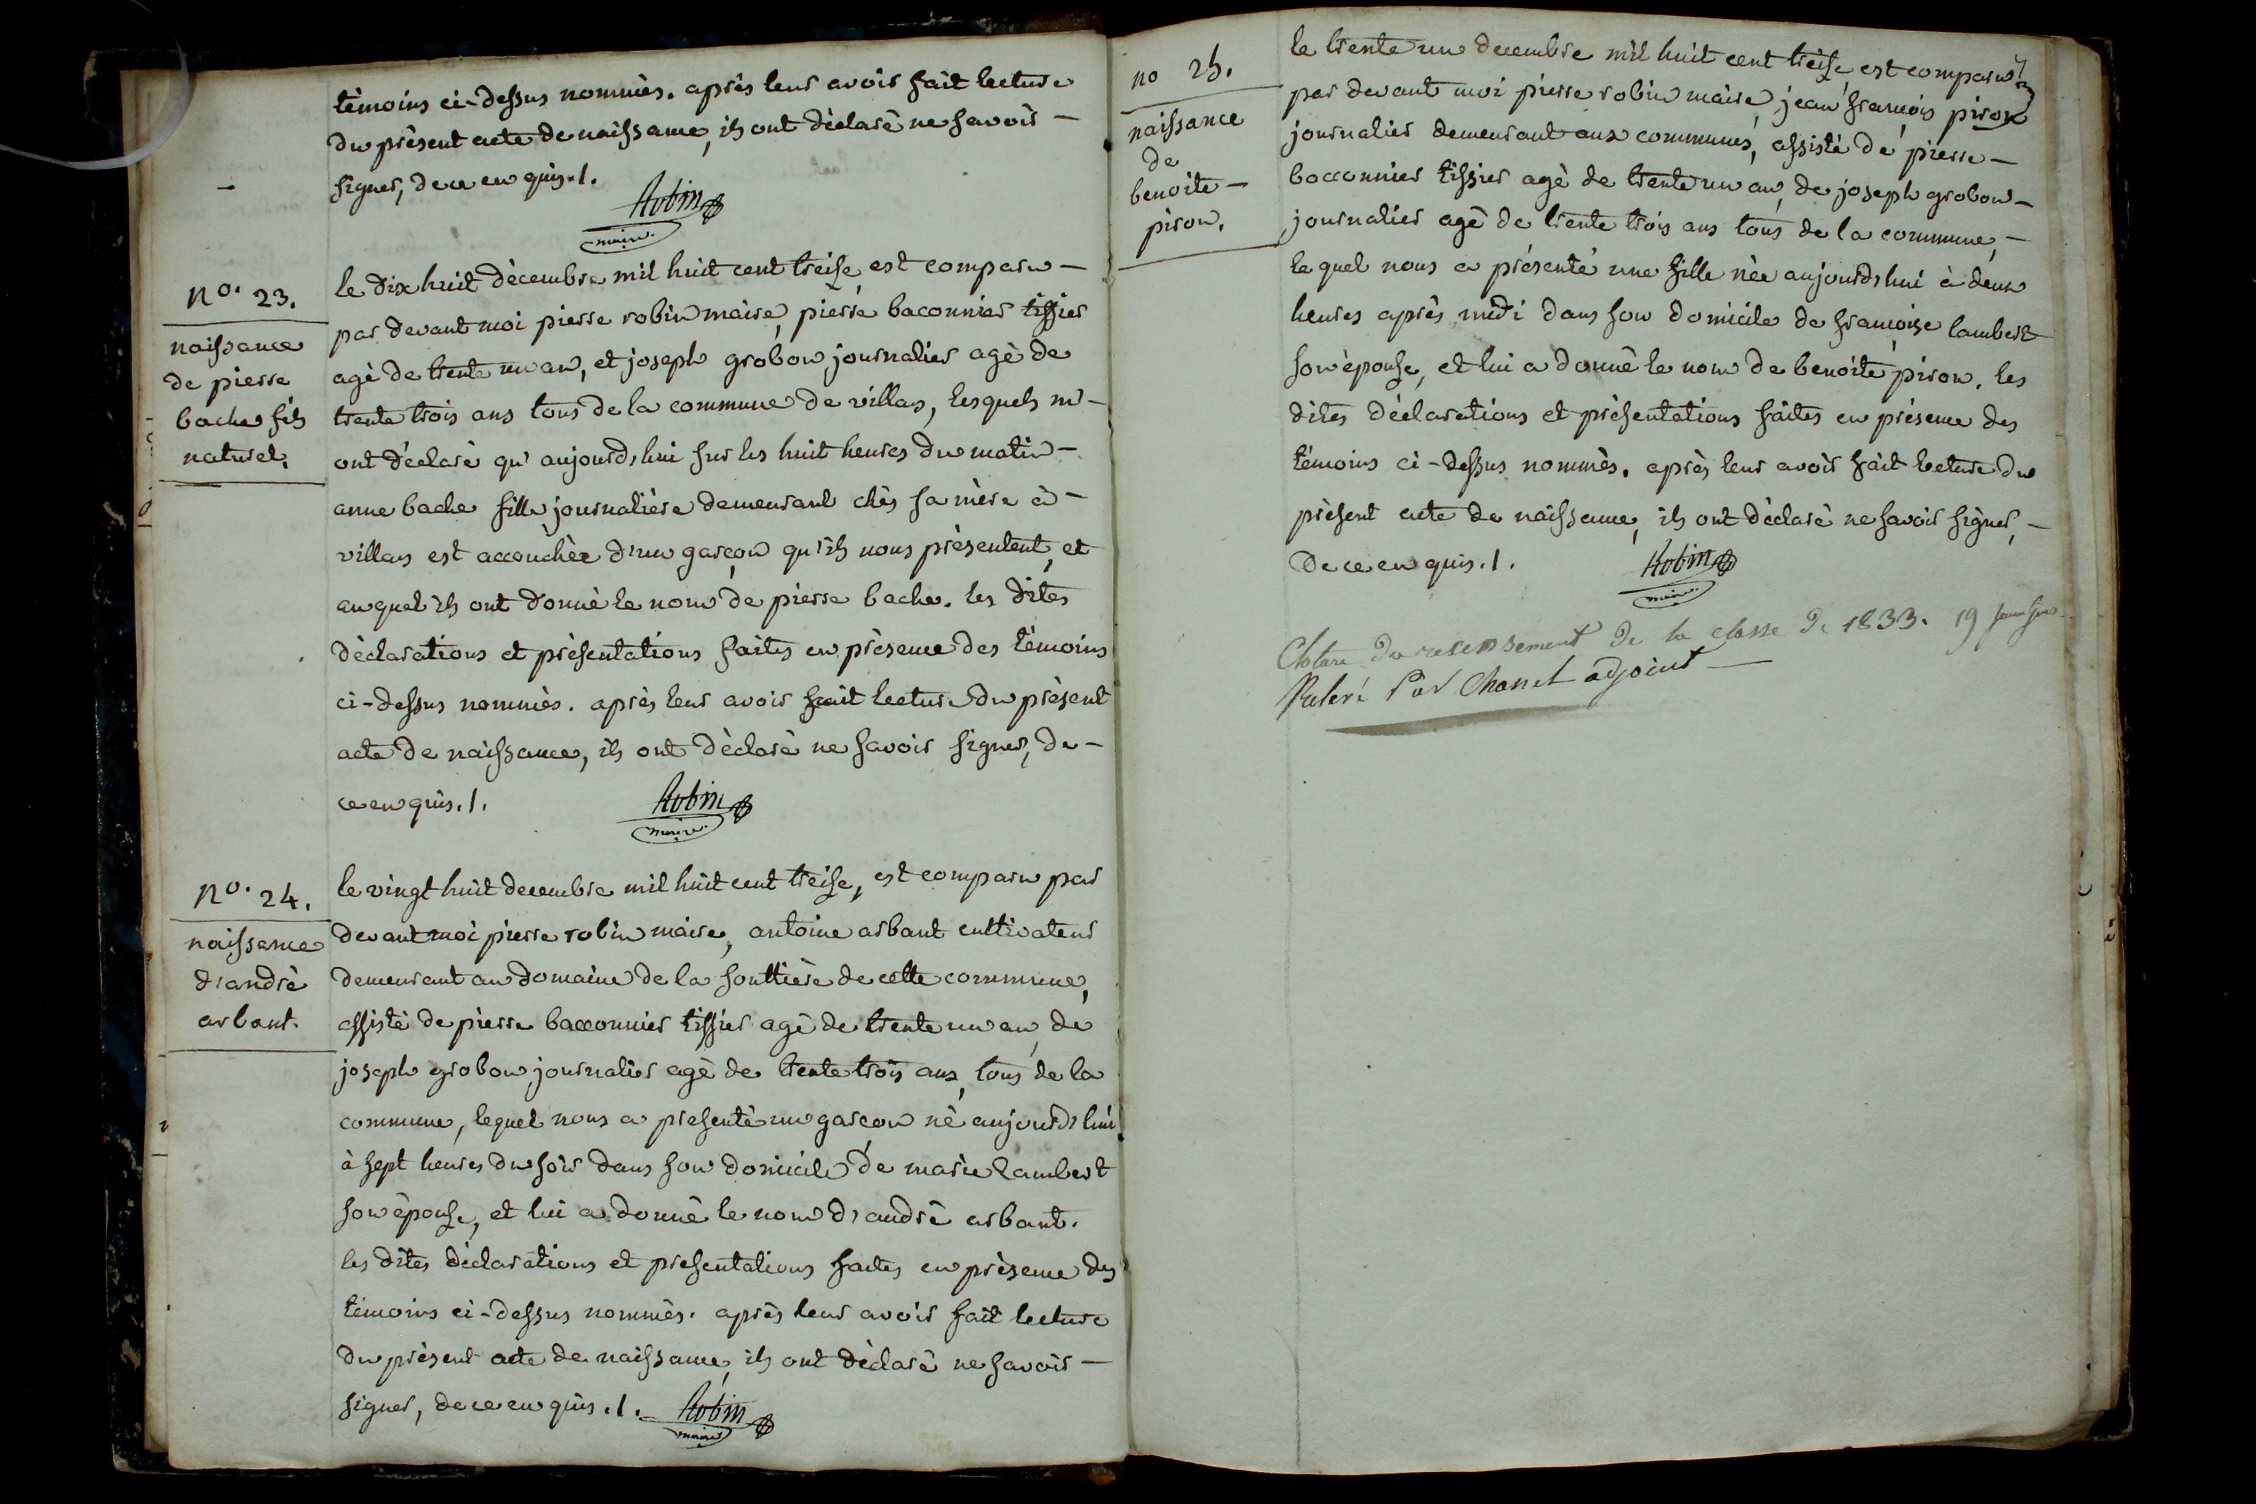 tèmoins ci-dessus nommès. après leur avoir fait lecture
du prèsent acte de naissance, ils ont dèclarè ne savoir —
signer, de ce enquis ./.
Robin
maire
no. 23.
naissance
de pierre
bache fils
naturel.
le dix huit dècembre mil huit cent treise est comparu —
par devant moi pierre robin maire, pierre baconnier tissier
agè de trente un an, et joseph grobon journalier agè de
trente trois ans tous de la commune de villars, lesquels m' —
ont dèclarè qu'aujourd'hui sur les huit heures du matin —
anne bache fille journalière demeurant chès sa mère à —
villars est accouchèe d'un garçon qu'ils nous prèsentent, et
auquel ils ont donnè le nom de pierre bache. les dites
dèclarations et prèsentations faites en prèsence des tèmoins
ci-dessus nommès. après leur avoir fait lecture du prèsent
acte de naissance, ils ont dèclarè ne savoir signer, de —
ce enquis ./.
Robin
maire
no. 24.
naissance
d'andrè
arbant.
le vingt huit decembre mil huit cent treise, est comparu par
devant moi pierre robin maire, antoine arbant cultivateur
demeurant au domaine de la souttière de cette commune,
assistè de pierre bacconnier tissier agè de trente un an, de
joseph grobon journalier agè de trente trois ans, tous de la
commune, lequel nous a presentè un garçon nè aujourd'hui
à sept heures du soir dans son domicile de marie Lambert
son èpouse, et lui a donnè le nom d'andrè arbant.
les dites dèclarations et presentations faites en prèsence des
tèmoins ci-dessus nommès. après leur avoir fait lecture
du prèsent acte de naissance, ils ont dèclarè ne savoir —
signer, de ce enquis ./. Robin
maire
no 25.
naissance
de
benoite —
piron.
le trente un decembre mil huit cent treise est comparu
par devant moi pierre robin maire, jean françois piron
journalier demeurant aux communes, assisté de pierre —
bacconnier tissier agè de trente un an, de joseph grobon —
journalier agè de trente trois ans tous de la commune, —
lequel nous a présenté une fille nèe aujourd'hui à deux
heures après midi dans son domicile de françoise lambert
son èpouse, et lui a donnè le nom de benoite piron. les
dites dèclarations et prèsentations faites en prèsence des
tèmoins ci-dessus nommès. après leur avoir fait lecture du
prèsent acte de naissance, ils ont dèclarè ne savoir signer, —
de ce enquis ./.
Robin
maire
Cloture du recensement de la classe de 1833. 19
Par Chanel adjoint —